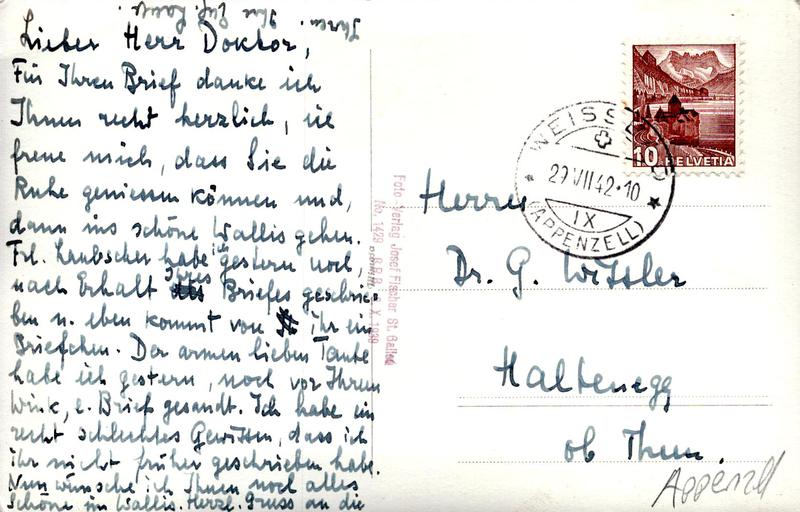 Lieber Herr Doktor,
Für Ihren Brief danke ich
Ihnen recht herzlich, ich
freue mich, dass Sie die
Ruhe geniessen können und,
dann ins schöne Wallis gehen.
Frl. Laubscher habe ich gestern noch,
nach Erhalt Ihres Briefes geschrie-
ben u. eben kommt von ihr ein
Briefchen. Der armen lieben Tante
habe ich gestern, noch vor Ihrem
Wink, e. Brief gesandt. Ich habe ein
recht schlechtes Gewissen, dass ich
ihr nicht früher geschrieben habe.
Nun wünsche ich Ihnen noch alles
Schöne im Wallis. Herzl. Gruss an die
Ihren. Ihre
Foto-Verlag Josef Fischer St. Gallen
No. 1429
X. 1939
WEISSB
29.VII.42-10
IX
(APPENZELL)
10 HELVETIA
Herrn
Dr. G. Wissler
Haltenegg
ob Thun.
Appenzell